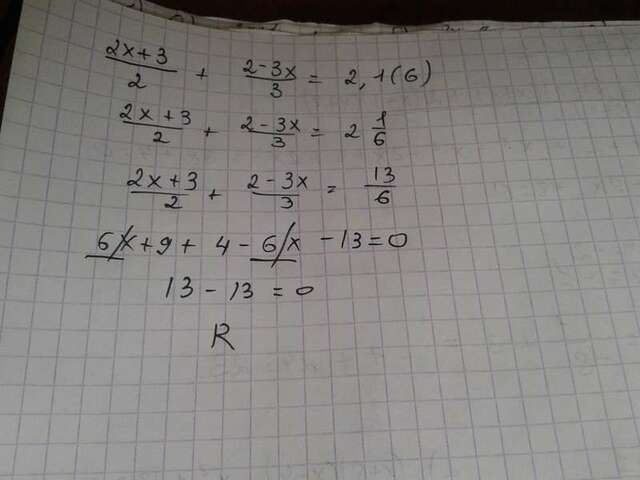 (2x+3)/2 + (2-3x)/3 = 2,1(6)
(2x+3)/2 + (2-3x)/3 = 2 1/6
(2x+3)/2 + (2-3x)/3 = 13/6
6x+9+4-6x-13=0
13-13=0
R